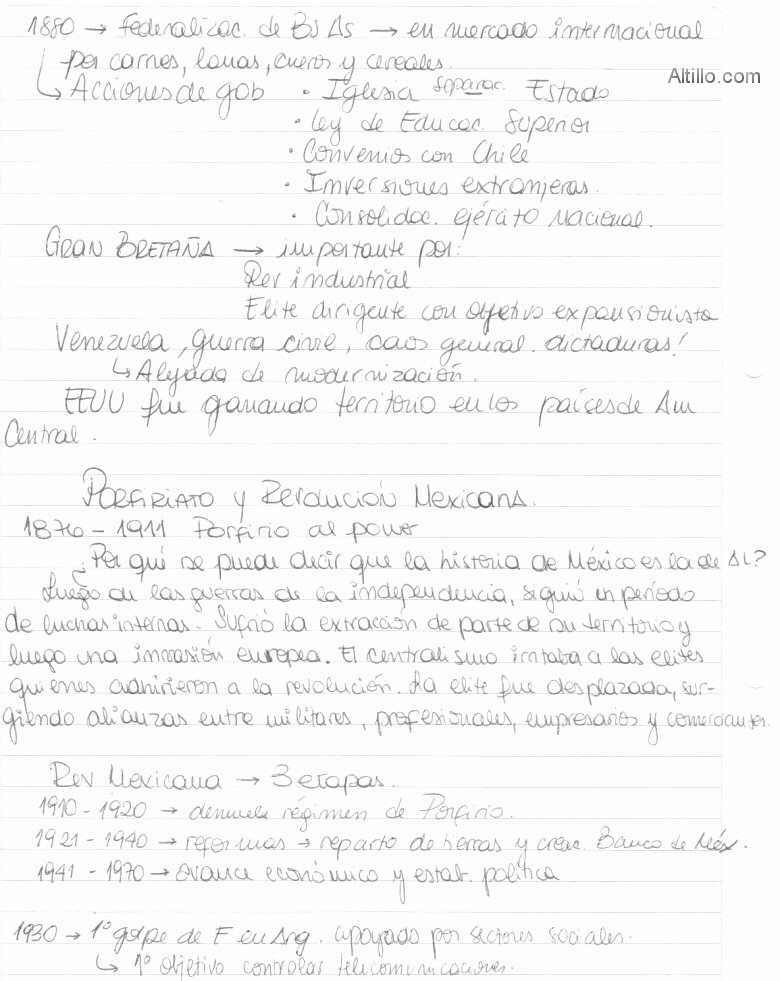 1880 → Federalizac. de Bs As → en mercado internacional
por carnes, lanas, cueros y cereales.
Altillo.com
↳ Acciones de gob • Iglesia separac. Estado
• Ley de Educac. Superior
• Convenios con Chile
• Inversiones extranjeras.
• Consolidac. ejército Nacional.
GRAN BRETAÑA → importante por:
Rev industrial
Elite dirigente con objetivo expansionista
Venezuela, guerra civil, caos general. dictaduras!
↳ Alejada de modernización.
EEUU fue ganando territorio en los países de Am
Central.
PORFIRIATO y Revolución Mexicana.
1876 - 1911 Porfirio al power
¿Por qué se puede decir que la historia de México es la de AL?
Luego de las guerras de la independencia, siguió un período
de luchas internas. Sufrió la extracción de parte de su territorio y
luego una invasión europea. El centralismo irritaba a las elites
quienes adhirieron a la revolución. La elite fue desplazada, sur-
giendo alianzas entre militares, profesionales, empresarios y comerciantes.
Rev Mexicana → 3 etapas.
1910 - 1920 → demuele régimen de Porfirio.
1921 - 1940 → reformas → reparto de tierras y creac. Banco de Méx.
1941 - 1970 → avance económico y estab. política
1930 → 1º golpe de E en Arg. apoyado por sectores sociales.
↳ 1º objetivo controlar telecomunicaciones.